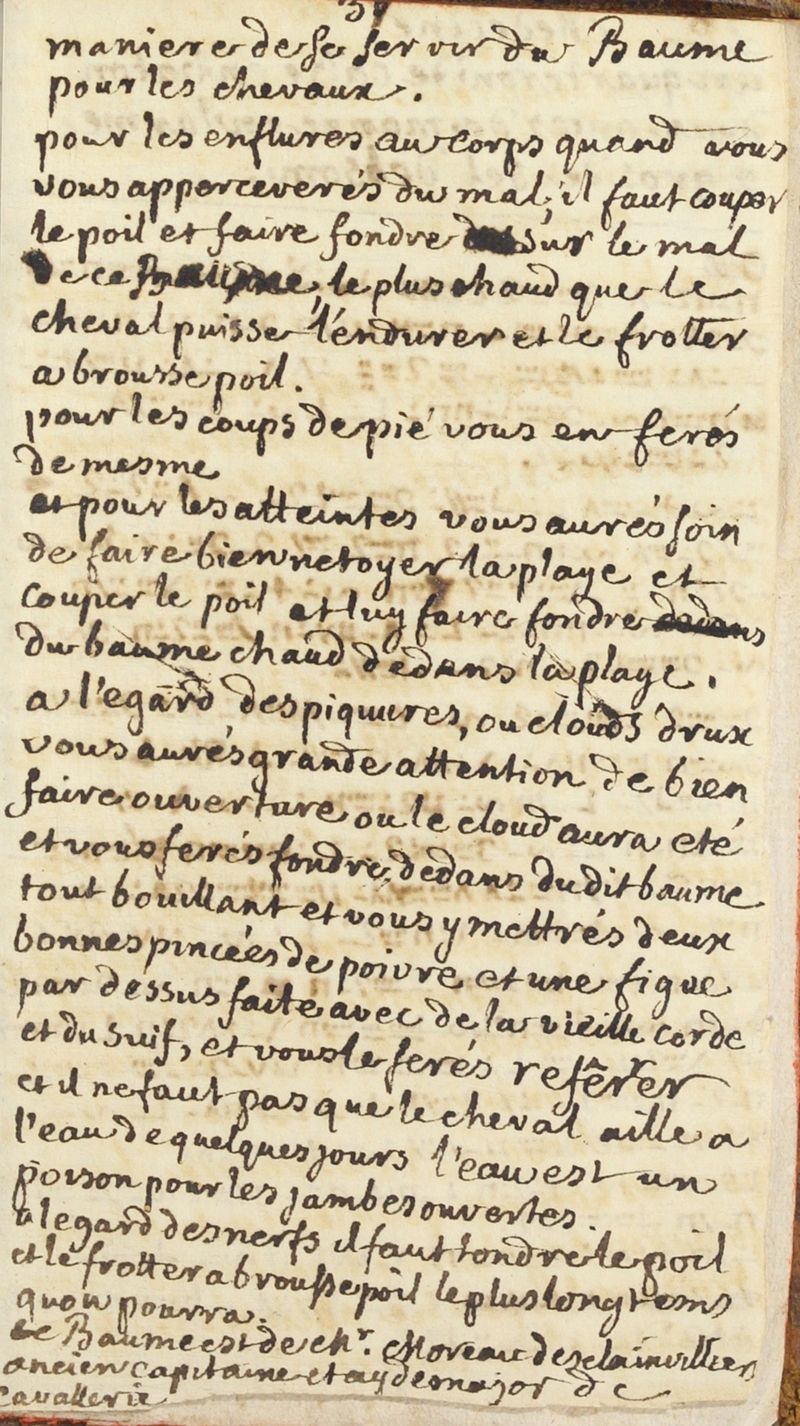 37
maniere de se servir du Baume
pour les chevaux.
pour les enflures au corps quand vous
vous apperceverés du mal, il faut couper
le poil et faire fondre sur le mal
de ce Baume, le plus chaud que le
cheval puisse l'endurer et le frotter
a brousse poil.
pour les coups de pié vous en ferés
de mesme
et pour les atteintes vous aurés soin
de faire bien netoyer la playe et
couper le poil et luy faire fondre dedans
du baume chaud dedans la playe.
a l'egard des piquures, ou clouds drux
vous aurés grande attention de bien
faire ouverture ou le cloud aura eté
et vous ferés fondre dedans dudit baume
tout bouillant et vous y mettrés deux
bonnes pincées de poivre et une figue
par dessus faite avec de la vieille corde
et du suif, et vous le ferés refêrrer
et il ne faut pas que le cheval aille a
l'eau de quelques jours l'eau est un
poison pour les jambes ouvertes.
a legard des nerfs il faut tondre le poil
et le frotter a brousse poil le plus longtems
quon pourra.
ce Baume est de Mr. Moreau desclainvilliers
ancien capitaine et aydemajor de
cavallerie